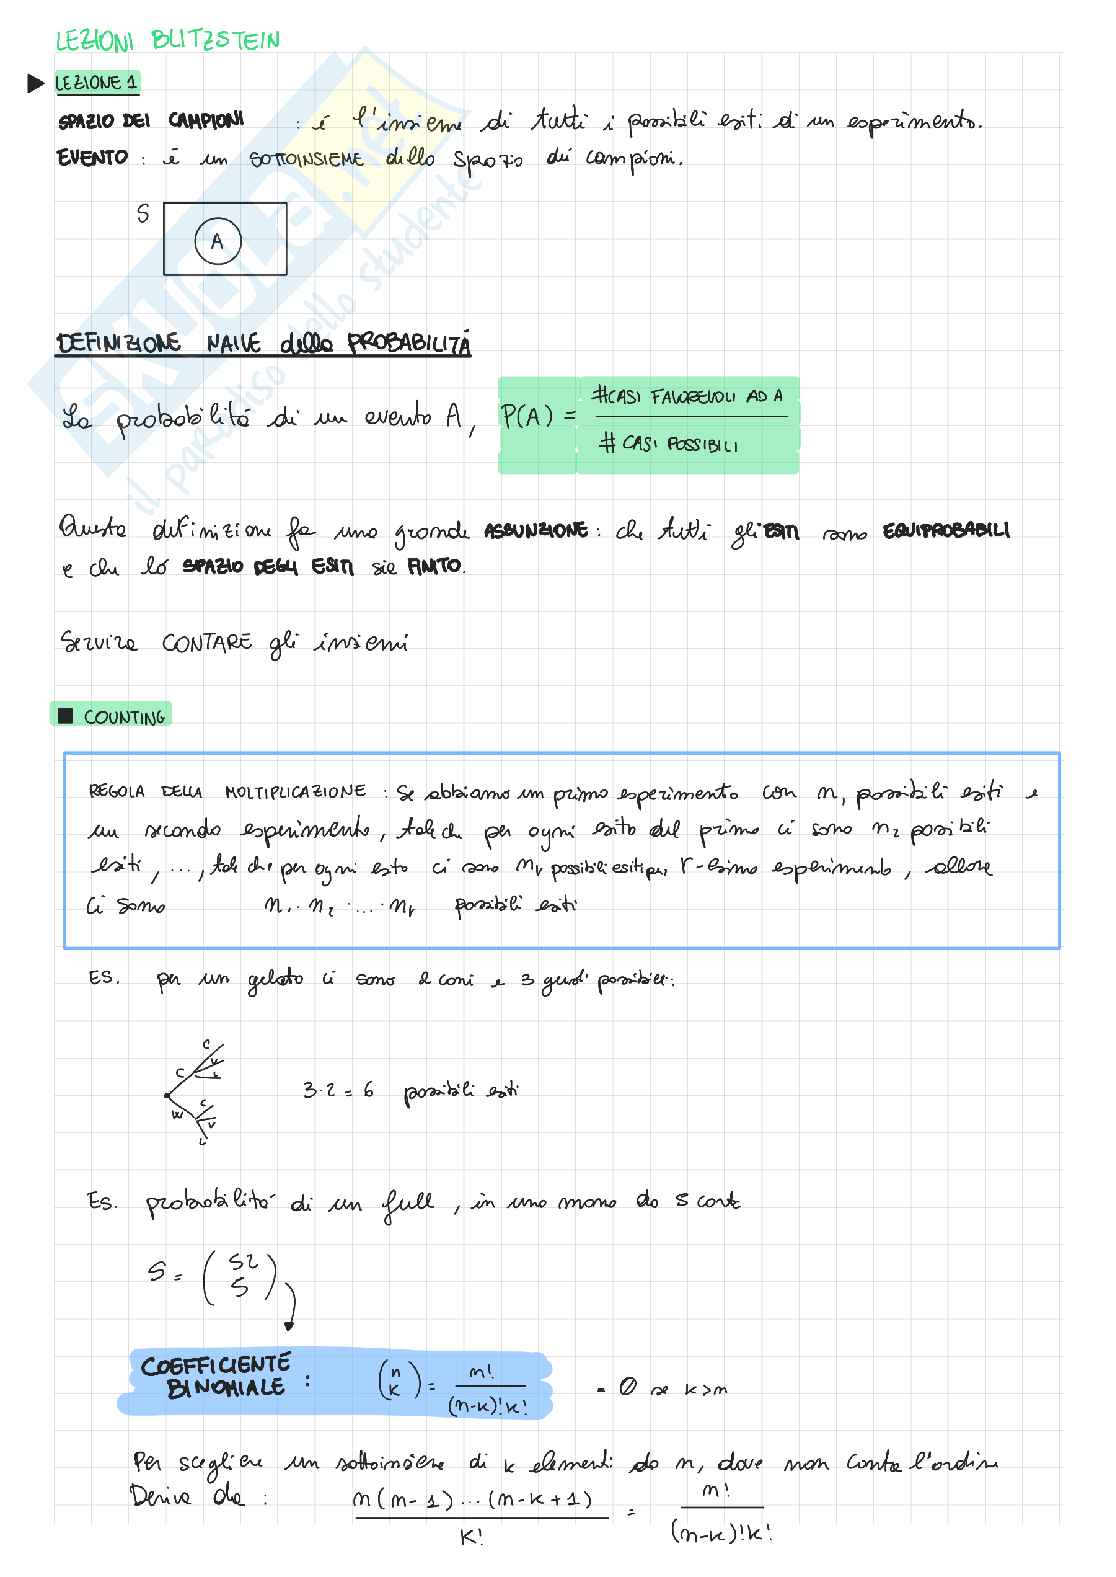 LEZIONI BLITZSTEIN
LEZIONE 1
SPAZIO DEI CAMPIONI : é l'insieme di tutti i possibili esiti di un esperimento.
EVENTO : é un SOTTOINSIEME dello spazio dei campioni.
S
A
DEFINIZIONE NAIVE della PROBABILITÁ
La probabilitá di un evento A, P(A) = #CASI FAVOREVOLI AD A / # CASI POSSIBILI
Questa definizione fa una grande ASSUNZIONE : che tutti gli ESITI sono EQUIPROBABILI
e che lo SPAZIO DEGLI ESITI sia FINITO.
Servira CONTARE gli insiemi
■ COUNTING
REGOLA DELLA MOLTIPLICAZIONE : Se abbiamo un primo esperimento con n₁ possibili esiti e
un secondo esperimento, tale che per ogni esito del primo ci sono n₂ possibili
esiti, ..., tale che per ogni esito ci sono nᵣ possibili esiti per r-esimo esperimento, allora
ci sono n₁ · n₂ · ... · nᵣ possibili esiti
ES. per un gelato ci sono 2 coni e 3 gusti possibili.
C
C V
L
W C
V
L
3·2 = 6 possibili esiti
Es. probabilitá di un full, in una mano da 5 carte
S = (52 5)
COEFFICIENTE
BINOMIALE : (n k) = n! / (n-k)! k! = 0 se k>n
Per scegliere un sottoinsieme di k elementi da n, dove non conta l'ordine
Deriva da : n(n-1)...(n-k+1) / k! = n! / (n-k)! k!
skuola.net
il paradiso dello studente